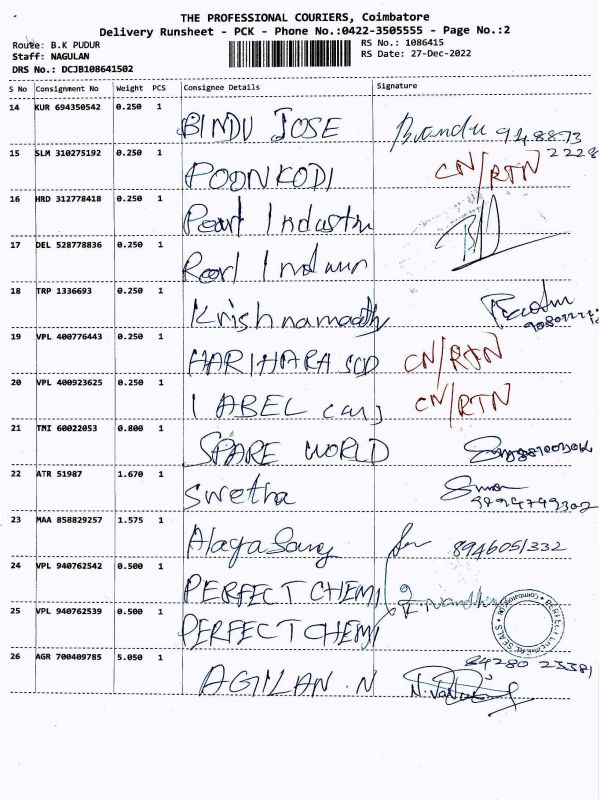 THE PROFESSIONAL COURIERS, Coimbatore
Delivery Runsheet - PCK - Phone No.:0422-3505555 - Page No.:2
Route: B.K PUDUR
RS No.: 1086415
Staff: NAGULAN
RS Date: 27-Dec-2022
DRS No.: DCJB108641502
S No Consignment No Weight PCS Consignee Details Signature
14 KUR 694350542 0.250 1 BINDU JOSE
15 SLM 310275192 0.250 1 POONKODI CN/RTN
16 HRD 312778418 0.250 1 Pearl
17 DEL 528778836 0.250 1
18 TRP 1336693 0.250 1
19 VPL 400776443 0.250 1 HARIHARA CN/RTN
20 VPL 400923625 0.250 1 LABEL CN/RTN
21 TMI 60022053 0.800 1 SPARE WORLD
22 ATR 51987 1.670 1 Swetha
23 MAA 858829257 1.575 1 8946051332
24 VPL 940762542 0.500 1 PERFECT CHEMI
25 VPL 940762539 0.500 1 PERFECT CHEMI
26 AGR 700409785 5.050 1 AGILAN . N 84280 23381